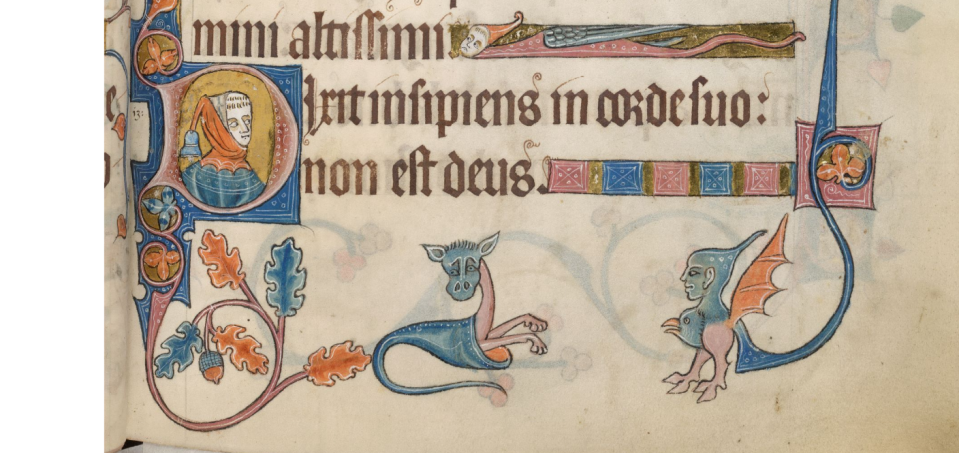 mini altissimi
Dixit insipiens in corde suo:
non est deus.
13: